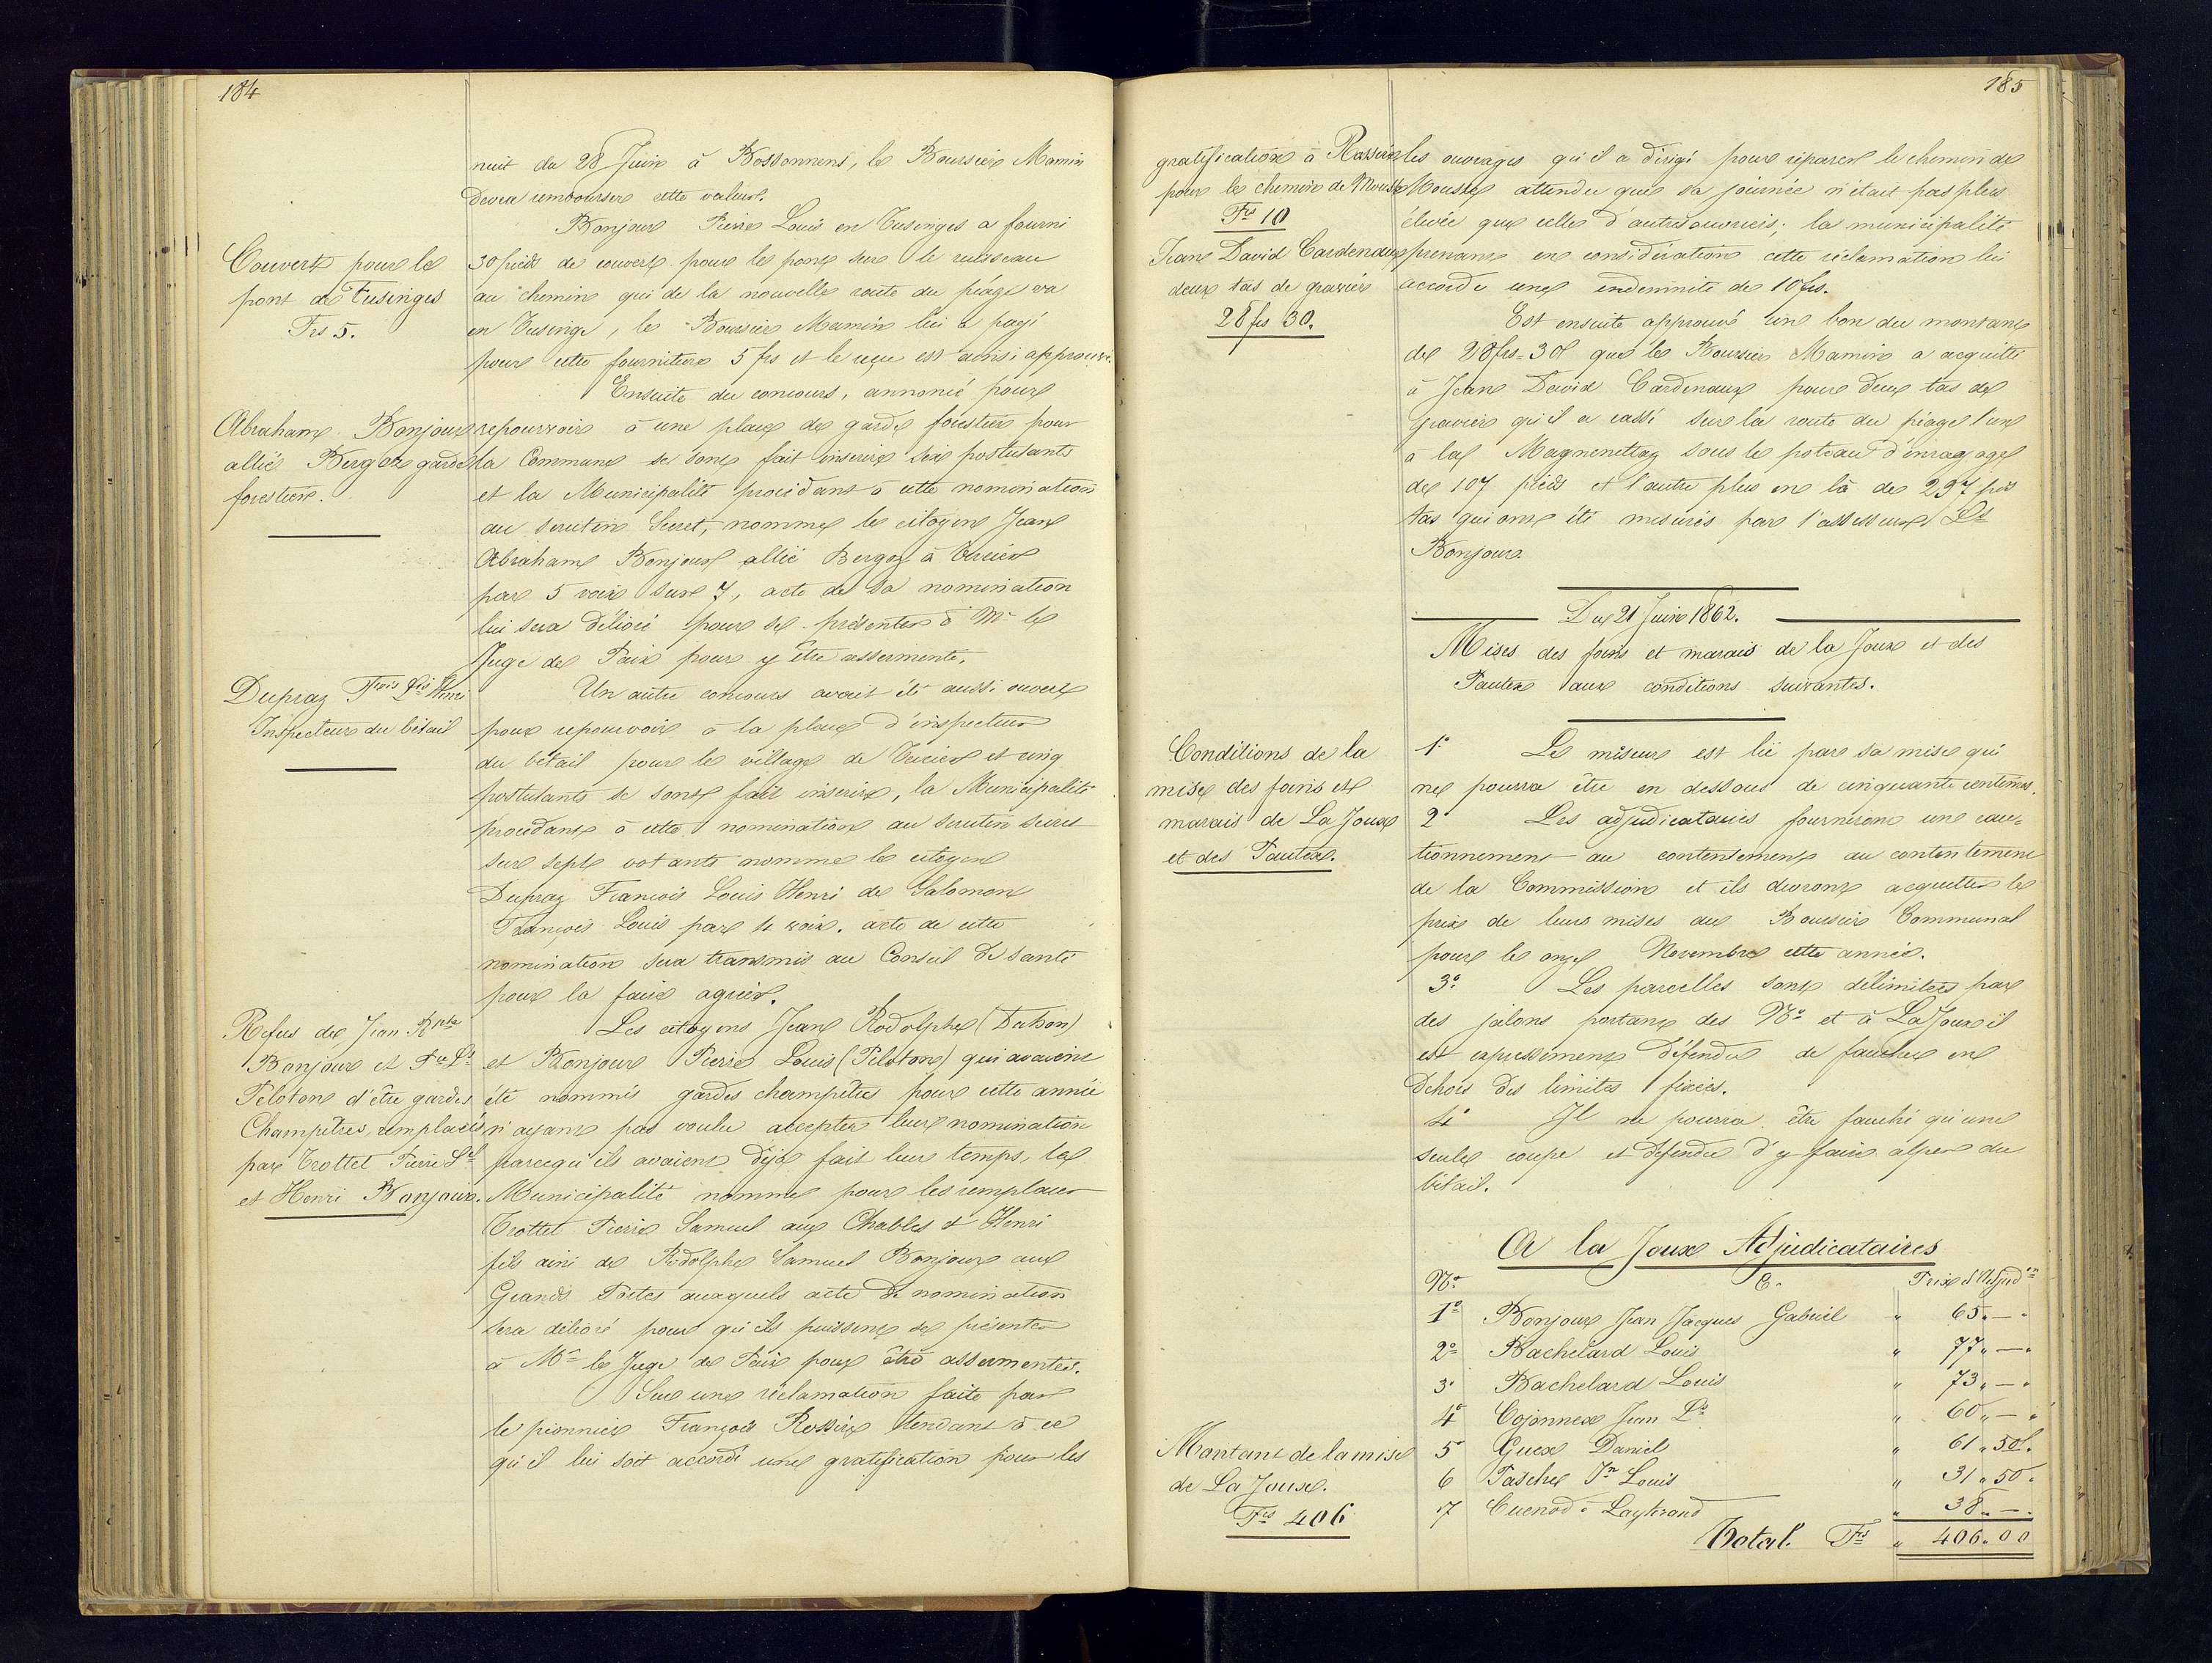 184
nuit du 28 Juin à Bossonnens, le Boursier Mamin
devra rembourser cette valeur.
Bonjour Pierre Louis en Tusinges a fourni
Couvert pour le
pont de Tusinges
Frs 5.
30 pieds de couvert pour le pont sur le ruisseau
au chemin qui de la nouvelle route du péage va
en Tusinge, le Boursier Mamin lui a payé
pour cette fourniture 5 frs et le reçu est ainsi approuvé.
Ensuite du concours, annoncé pour
Abraham Bonjour
allié Bergoz garde
forestier.
repourvoir à une place de garde forestier pour
la Commune se sont fait inscrire six postulants
et la Municipalité procédant à cette nomination
au scrutin Secret, nomme le citoyen Jean
Abraham Bonjour allié Bergoz à
par 5 voix sur 7, acte de sa nomination
lui sera délivré pour se présenter à Mr le
Juge de Paix pour y être assermenté.
Dupraz Frois Ls Henri
Inspecteur du bétail
Un autre concours avait été aussi ouvert
pour repourvoir à la place d'inspecteur
du bétail pour le village de et cinq
postulants se sont fait inscrire, la Municipalité
procédant à cette nomination au scrutin secret
sur sept votants nomme le citoyen
Dupraz François Louis Henri de Salomon
François Louis par 4 voix. acte de cette
nomination sera transmis au Conseil de santé
pour la faire agréer.
Refus de Jean Rphe
Bonjour et Pre Ls
Peloton d'être gardes
Champêtres, remplacés
par Trottet Pierre Sl
et Henri Bonjour.
Les citoyens Jean Rodolphe (Dahon)
et Bonjour Pierre Louis (Peloton) qui avaient
été nommés gardes champêtres pour cette année
n'ayant pas voulu accepter leur nomination
parcequ'ils avaient déjà fait leur temps, la
Municipalité nomme pour les remplacer
Trottet Pierre Samuel aux Chables et Henri
fils ainé de Rodolphe Samuel Bonjour aux
Grands auxquels acte de nomination
sera délivré pour qu'ils puissent se présenter
à Mr le Juge de Paix pour être assermentés.
Sur une réclamation faite par
le pionnier François Rossier tendant à ce
qu'il lui soit accordé une gratification pour les
185
gratification à Rossier
pour le chemin de Mousse
Frs 10
les ouvrages qu'il a dirigé pour réparer le chemin de
Mousse attendu que sa journée n'était pas plus
élevée que celle d'autres ouvriers; la municipalité
prenant en considération cette réclamation lui
accorde une indemnité de 10 frs.
Jean David Cardenaux
deux tas de gravier
28 frs 30.
Est ensuite approuvé un bon du montant
de 28 frs = 30 que le Boursier Mamin a acquitté
à Jean David Cardinaux pour deux tas de
Gravier qu'il a cassé sur la route du péage l'un
à la Magnenettaz sous le poteau d'enrayage
de 107 pieds et l'autre plus en là de 297 pds
tas qui ont été mesurés par l'assesseur Ls
Bonjour.
Du 21 Juin 1862.
Mises des foins et marais de la Joux et des
Pautex aux conditions suivantes.
Conditions de la
mise des foins et
marais de La Joux
et des Pautex.
1° Le miseur est lié par sa mise qui
ne pourra être en dessous de cinquante centimes.
2° Les adjudicataires fourniront une cau=
tionnement au contentement au contentement
de la Commission et ils devront acquitter le
prix de leurs mises au Boursier Communal
pour le onze Novembre cette année.
3° Les parcelles sont délimitées par
des jalons portant des No et à La Joux il
est expressément défendu de faucher en
dehors des limites fixées.
4° Il ne pourra être fauché qu'une
seule coupe et défendu d'y faire alper du
bétail.
A la Joux Adjudicataires
No. C. Prix d'Adjudon
1° Bonjour Jean Jacques Gabriel " 65 " — "
2° Bachelard Louis " 77 " — "
3° Bachelard Louis " 73 " — "
4° Cojonnex Jean Ls " 60 " — "
5° Guex Daniel " 61 " 50.
6 Pasche Jn Louis " 31 " 50 "
7 Cuenod = " 38 " — "
Total. Frs " 406.00
Montant de la mise
de La Joux.
Frs 406